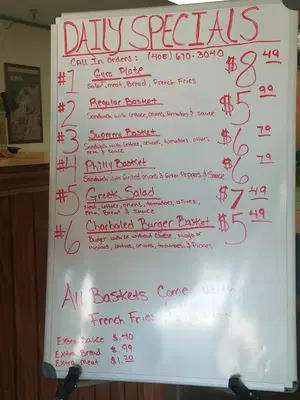 DAILY SPECIALS
CALL IN Orders: (405) 670-3040
#1 Gyro Plate $8 49
Salad, meat, Bread, French Fries
#2 Regular Basket $5 99
Sandwich with Lettuce, onions, tomatoes, & sauce
#3 Supreme Basket $6 79
Sandwich with Lettuce, onions, tomatoes, olives,
& sauce
#4 Philly Basket $6 79
Sandwich with Grilled onions & Green Peppers & Sauce
#5 Greek Salad $7 49
Meat, Lettuce, onions, tomatoes, olives,
Bread & sauce
#6 Charboiled Burger Basket $5 49
Burger with or without Cheese, Mayo or
Mustard, Lettuce, onions, tomatoes, & Pickles
All Baskets Come With
French Fries
Extra Sauce $.40
Extra Bread $.99
Extra Meat $1.20